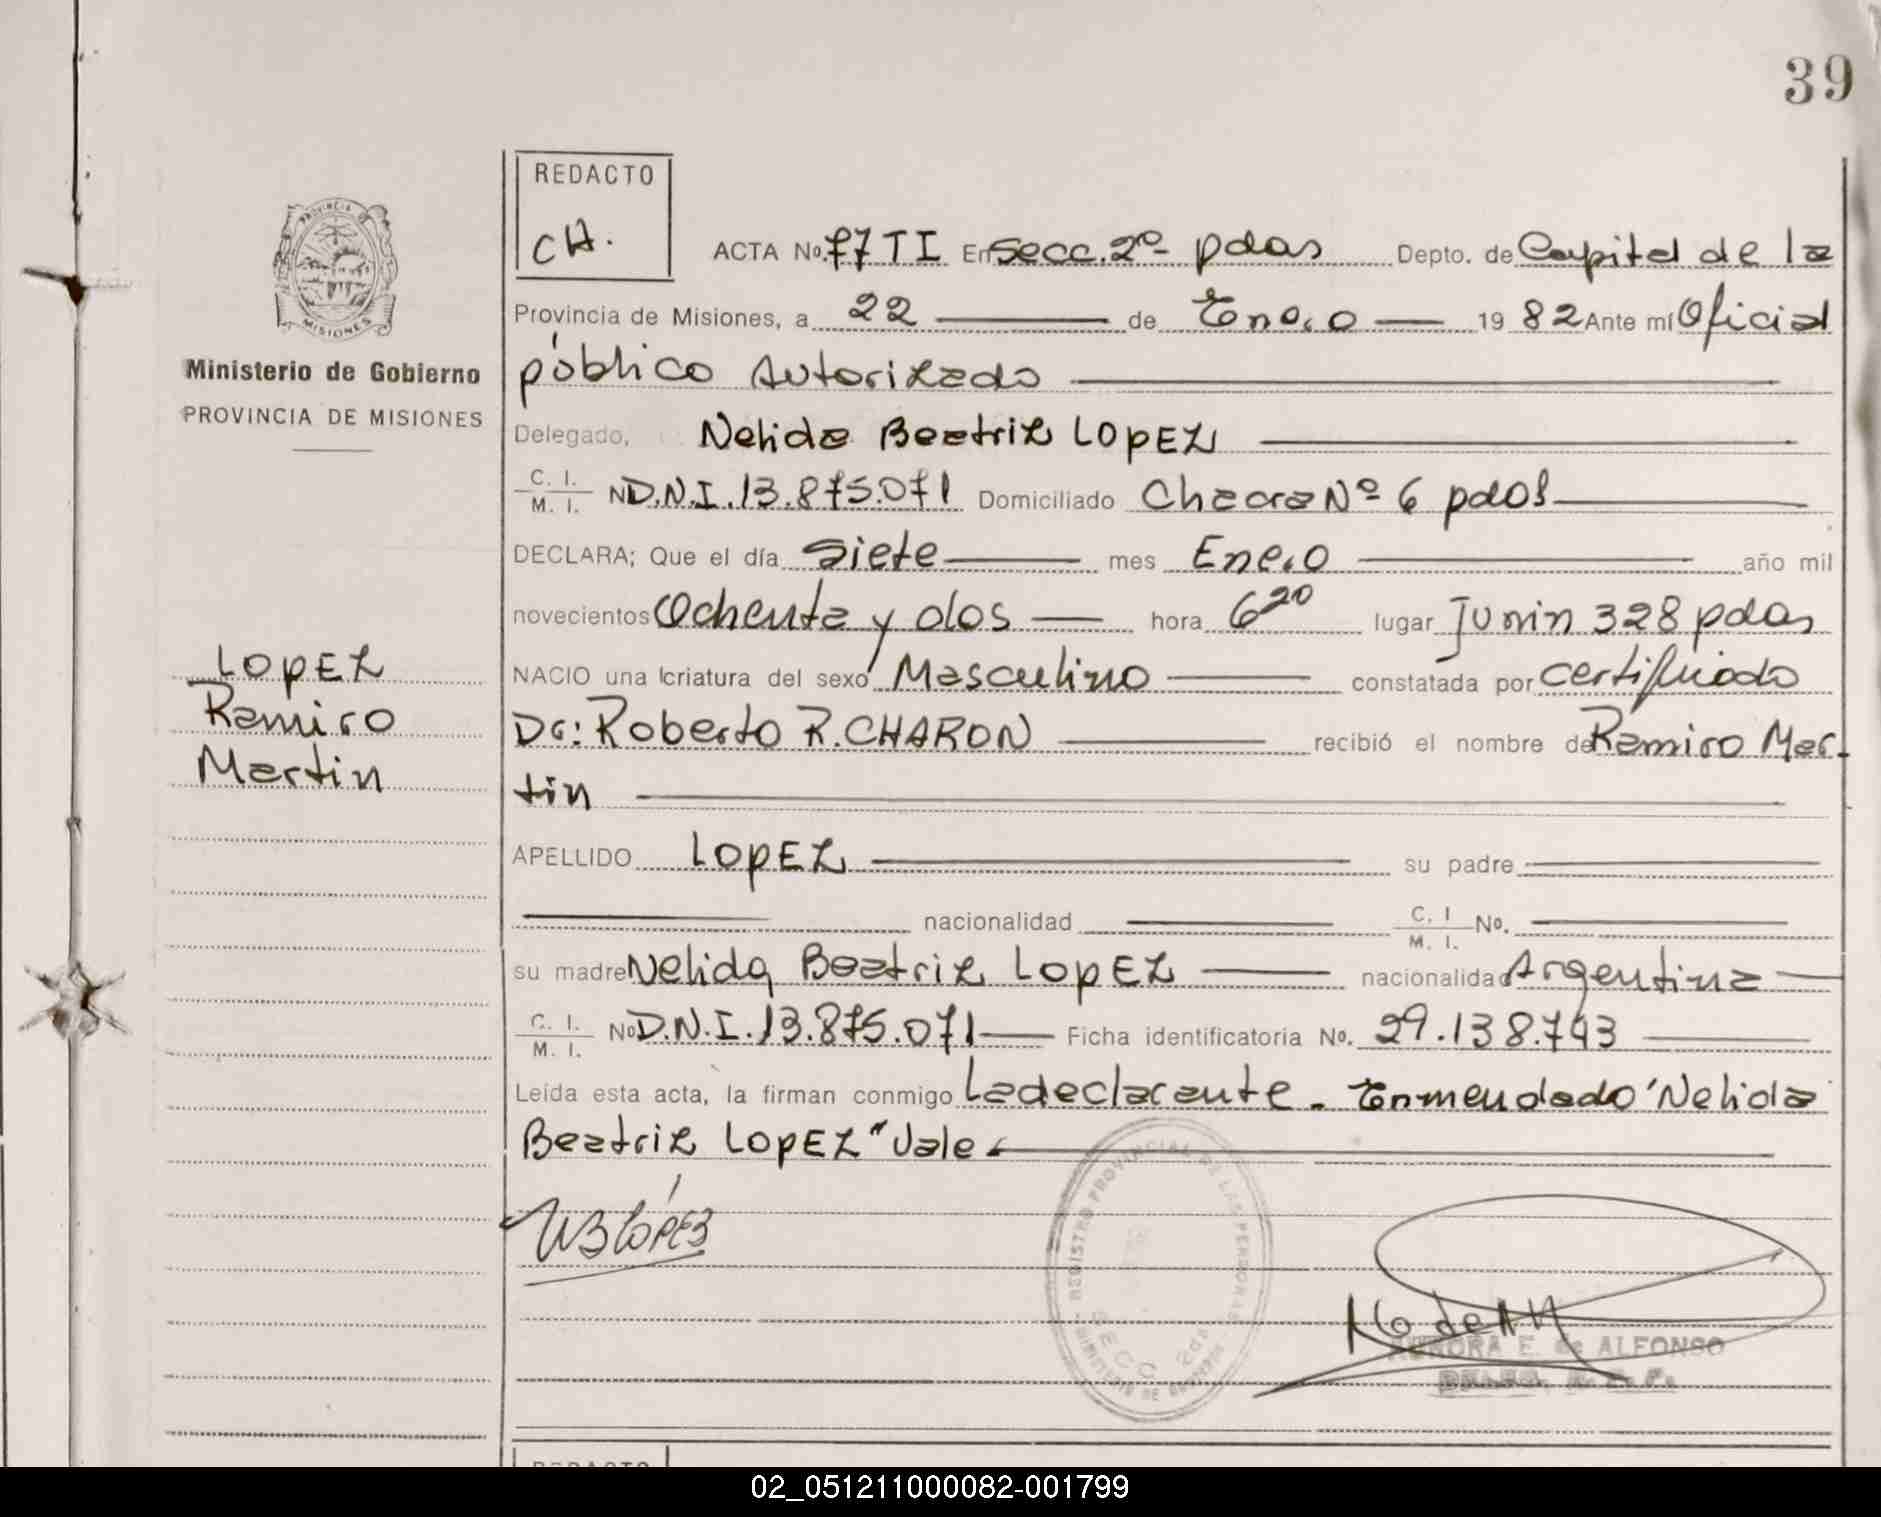 39
REDACTO
CH.
PROVINCIA DE
MISIONES
Ministerio de Gobierno
PROVINCIA DE MISIONES
LOPEZ
Ramiro
Martin
ACTA No. 77 TI En Secc. 2º pdas Depto. de Capital de la
Provincia de Misiones, a 22 de Enero 19 82 Ante mí Oficial
público Autorizado
Delegado, Nelida Beatriz LOPEZ
C. I. M. I. N D.N.I. 13.875.071 Domiciliado Chacra Nº 6 pdas
DECLARA; Que el día siete mes Enero año mil
novecientos Ochenta y dos hora 6 20 lugar Junin 328 pdas
NACIO una criatura del sexo Masculino constatada por certificado
Dr: Roberto R. CHARON recibió el nombre de Ramiro Mar-
tin
APELLIDO LOPEZ su padre
nacionalidad C. I M. I. No.
su madre Nelida Beatriz LOPEZ nacionalidad Argentina
C. I. M. I. No D.N.I. 13.875.071 Ficha identificatoria No. 29.138.743
Leída esta acta, la firman conmigo La declarante - Enmendado "Nelida
Beatriz LOPEZ" Vale
NB López
REGISTRO PROVINCIAL DE LAS PERSONAS
SECC 2da
MINISTERIO DE GOBIERNO
AURORA E. de ALFONSO
REDACTO
02_051211000082-001799